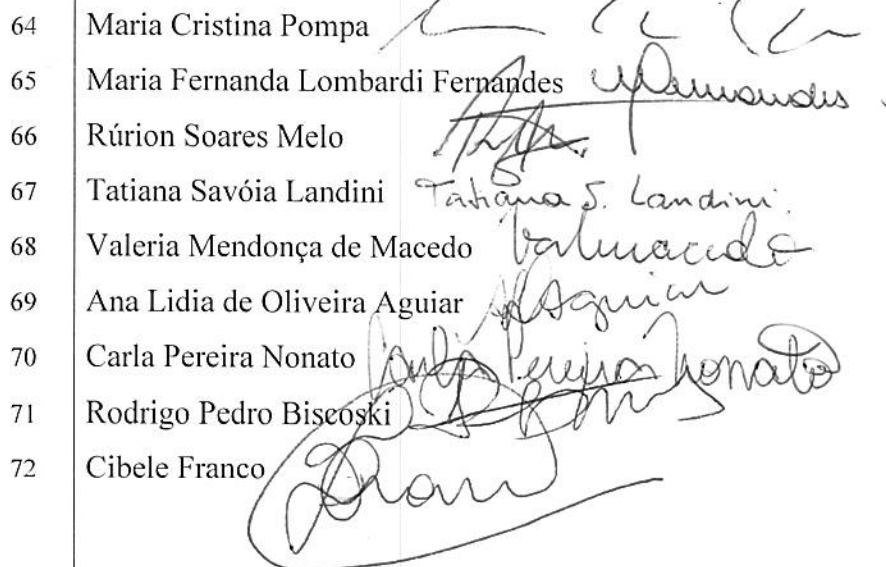 64 Maria Cristina Pompa
65 Maria Fernanda Lombardi Fernandes
66 Rúrion Soares Melo
67 Tatiana Savóia Landini Tatiana S. Landini.
68 Valeria Mendonça de Macedo
69 Ana Lidia de Oliveira Aguiar Aguiar
70 Carla Pereira Nonato Carla Pereira Nonato
71 Rodrigo Pedro Biscoski
72 Cibele Franco